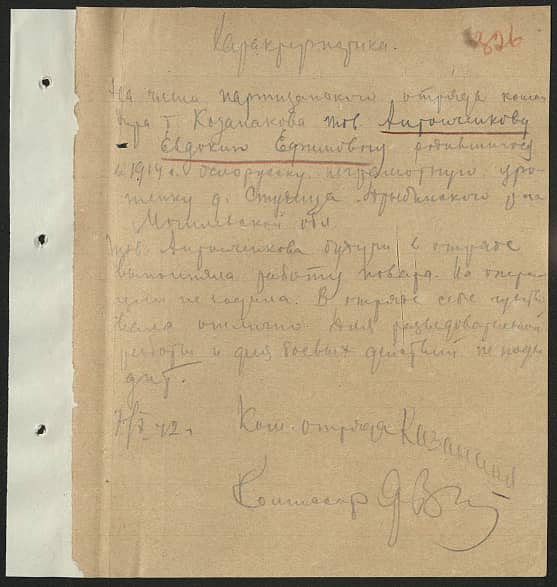 Характеристика.
326
На члена партизанского отряда коман
дира т. Казанкова тов. Антонченкову
Евдокию Ефимовну родившуюся
в 1914 г. белоруску неграмотную уро
женку д. Дрыбинского р-на
Могилевской обл.
Тов. Антонченкова будучи в отряде
выполняла работу повара. На опера
ции не ходила. В отряде себе чувст
вовала отлично для разведовательной
работы и для боевых действий не подхо
дит.
7/X 42 г. Ком. отряда Казанков
Комиссар